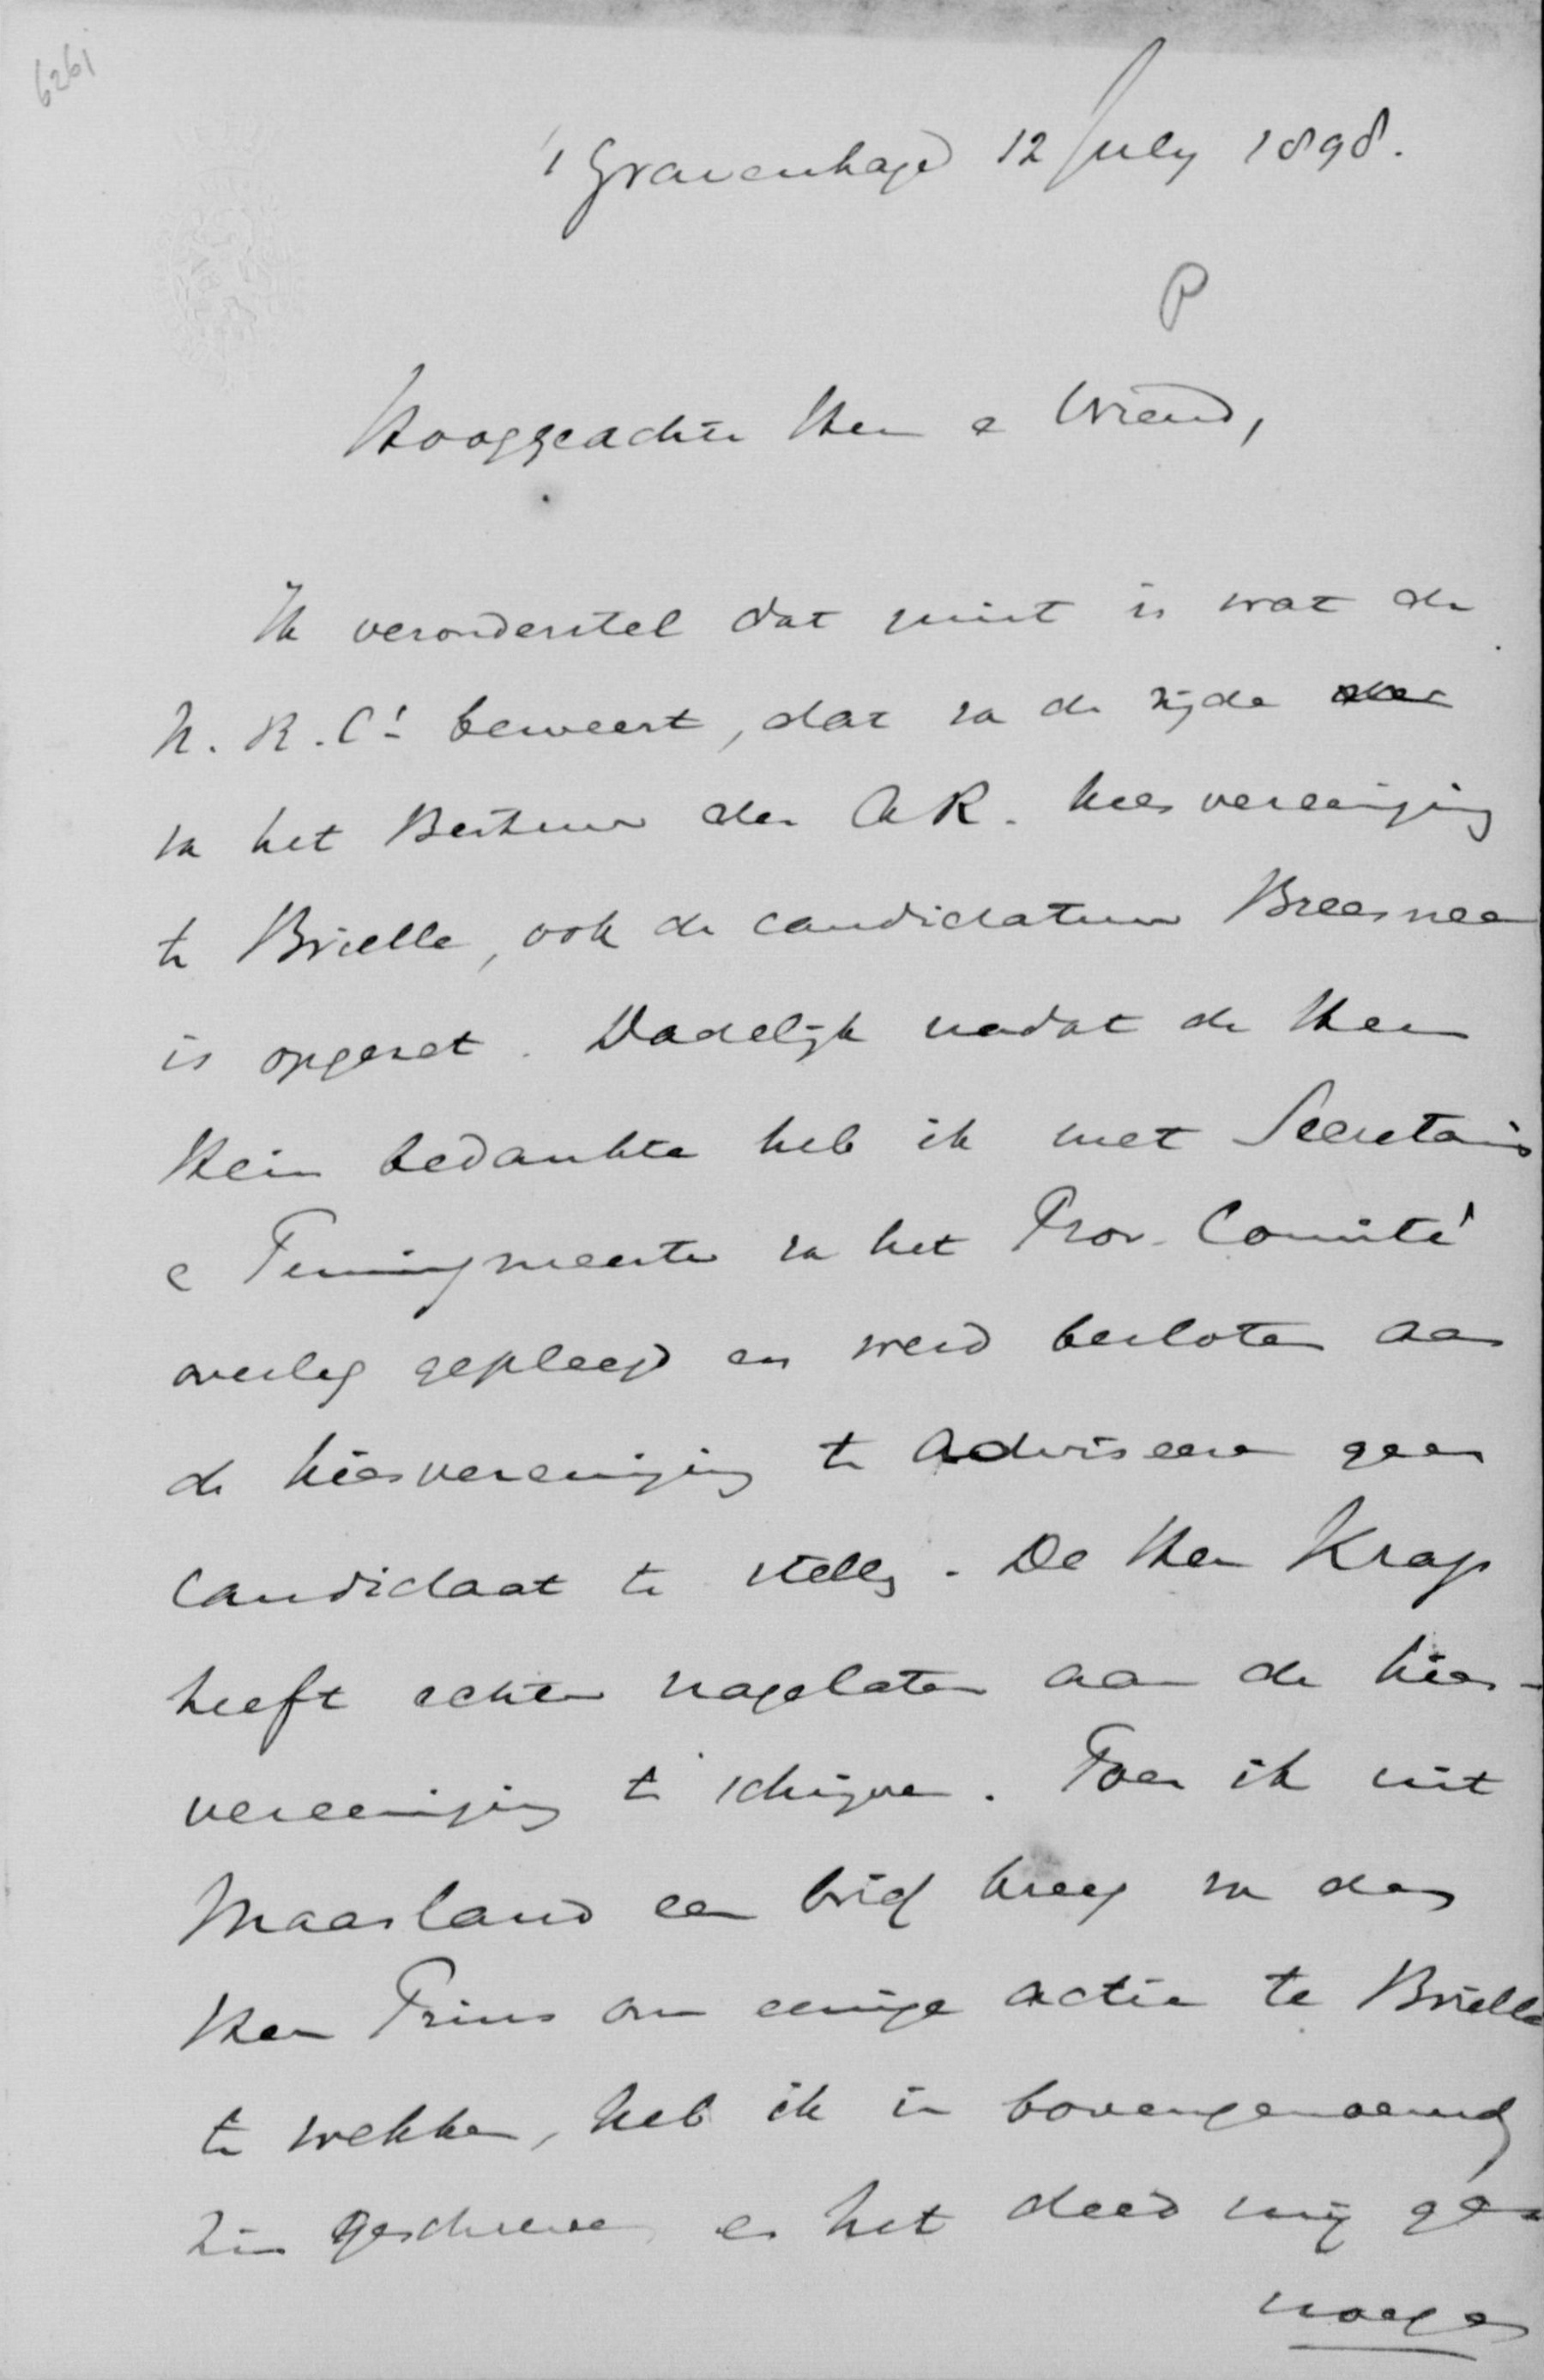 6261
's Gravenhage 12 July 1898.
P
Hooggeachte Heer e Vriend,
Ik veronderstel dat juist is wat de
N. R. Ct beweert, dat va de zijde der
va het Bestuur der AR. kiesvereeniging
te Brielle, ook de candidatuur Breesnee
is opgezet. Dadelijk nadat de Heer
Hein bedankte heb ik met Secretaris
e Penningmeester va het Prov. Comité
overleg gepleegd en werd besloten aan
de kiesvereeniging te adviseeren geen
candidaat te stellen. De Heer Krap
heeft echter nagelaten aan de kies-
vereeniging te schrijven. Toen ik uit
Maasland een brief kreeg va den
Heer Prins om eenige actie te Brielle
te wekken, heb ik in bovengenoemd
zin geschreven en het deed mij ge-
noegen